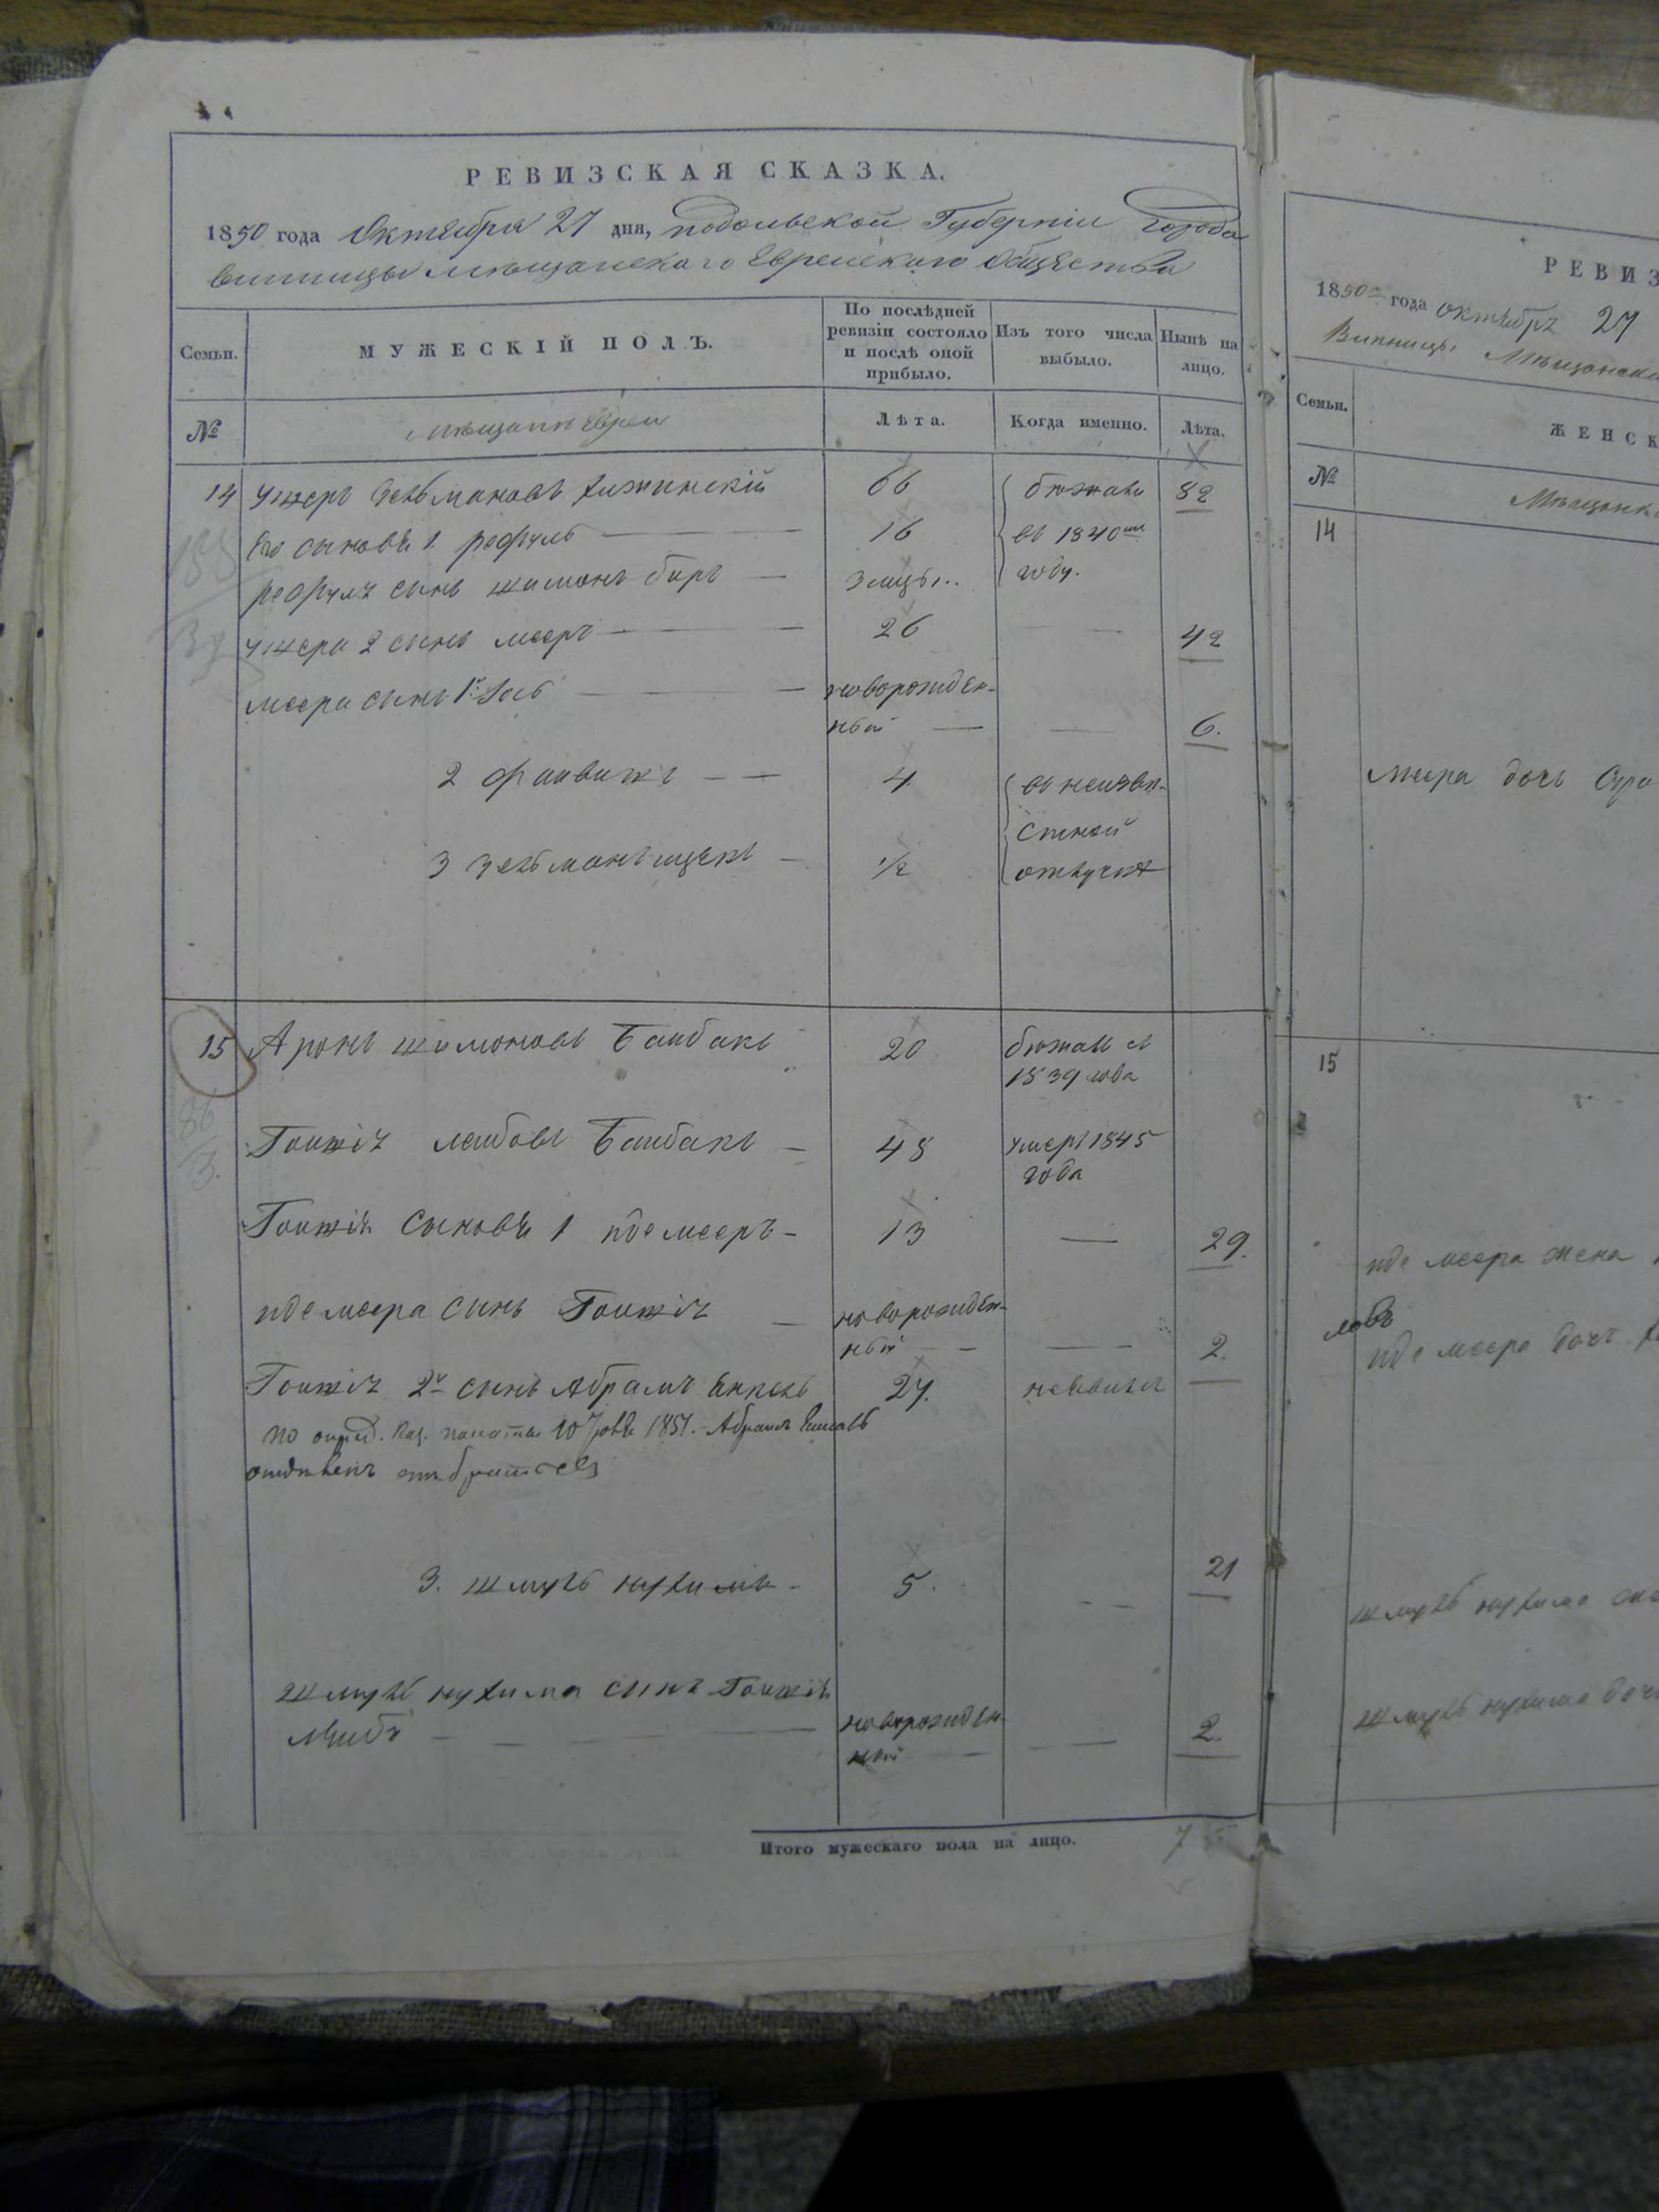 РЕВИЗСКАЯ СКАЗКА.
1850 года Октября 27 дня, подольской Губерніи Города
винницы мѣщанскаго Еврейскаго Общества
Семьи.
МУЖЕСКІЙ ПОЛЪ.
По послѣдней ревизіи состояло и послѣ оной прибыло.
Изъ того числа выбыло.
Нынѣ на лицо.
№
мѣщане Евреи
Лѣта.
Когда именно.
Лѣта.
14 Ушеръ Зельмановъ 66 бѣжалъ 82
Его сыновья 1 рефуль 16 въ 1840мъ
рефула сынъ шимонъ беръ 3 мцы.. году.
ушера 2 сынъ мееръ 26 42
меера сынъ 1й новорожден-
ный 6.
2 файвишъ 4 въ неизвѣ-
стной
3 зельманъ ицекъ 1/2 отлучкѣ
15 Аронъ шимоновъ Байбакъ 20 бѣжалъ съ
1839 года
Гоишія лейбовъ Байбакъ 48 умеръ 1845
года
Гоишія сыновья 1 иде мееръ 13 29.
иде меера сынъ Гоишія новорожден-
ный 2.
Гоишія 2й сынъ Абрамъ Янкель 27. неявился
по опред. Каз. палаты 10 1851. Абрамъ
3. шмуль нухимъ 5. 21
Шмуль нухима сынъ Гоишія
лейбъ новорожден-
ный 2.
Итого мужескаго пола на лицо. 7
РЕВИЗ
1850го года октября 27
Винницы Мѣщанска
Семьи.
ЖЕНСК
№
Мѣщанк
14
меера дочь Сура
15
иде меера жена
иде меера дочь
шмуль нухима
шмуль нухима дочь